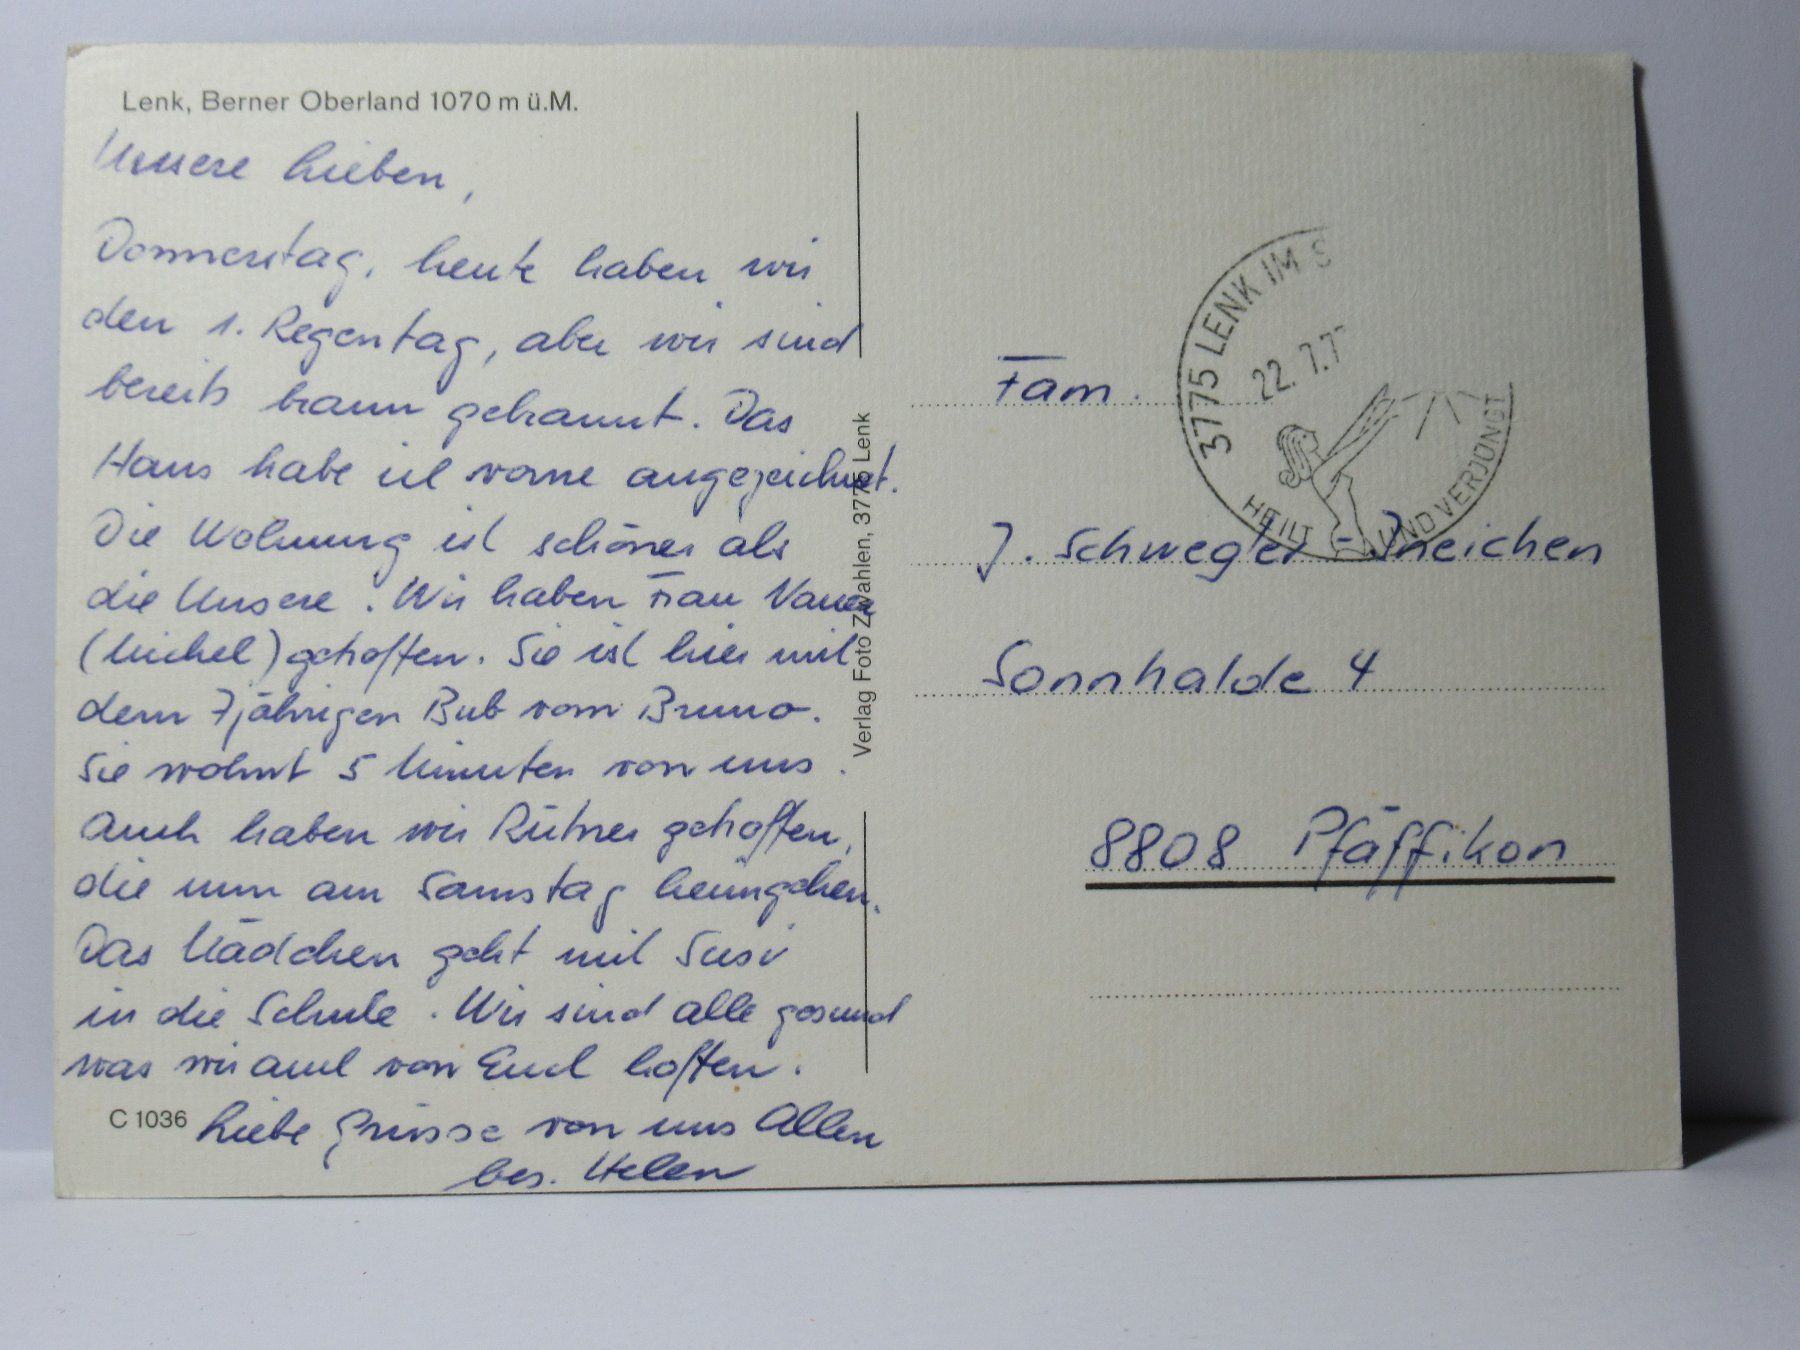 Lenk, Berner Oberland 1070 m ü.M.
Unsere Lieben,
Donnerstag, heute haben wir
den 1. Regentag, aber wir sind
bereits braun gebrannt. Das
Haus habe ich vorne angezeichnet.
Die Wohnung ist schöner als
die Unsere. Wir haben Frau
(Michel) getroffen. Sie ist hier mit
dem 7jährigen Bub vom Bruno.
Sie wohnt 5 Minuten von uns.
Auch haben wir getroffen,
die nun am Samstag heimgehen.
Das Mädchen geht mit Susi
in die Schule. Wir sind alle gesund
was wir auch von Euch hoffen.
Liebe Grüsse von uns Allen
bes. Helen
C 1036
Verlag Foto Zwahlen, 3775 Lenk
3775 LENK IM S
22. 7. 7
HEILT UND VERJÜNGT
Fam.
J. Schwegler-Ineichen
Sonnhalde 4
8808 Pfäffikon